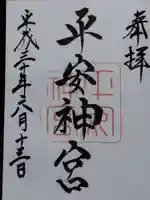 奉拝
平安神宮
平成三十年三月十三日